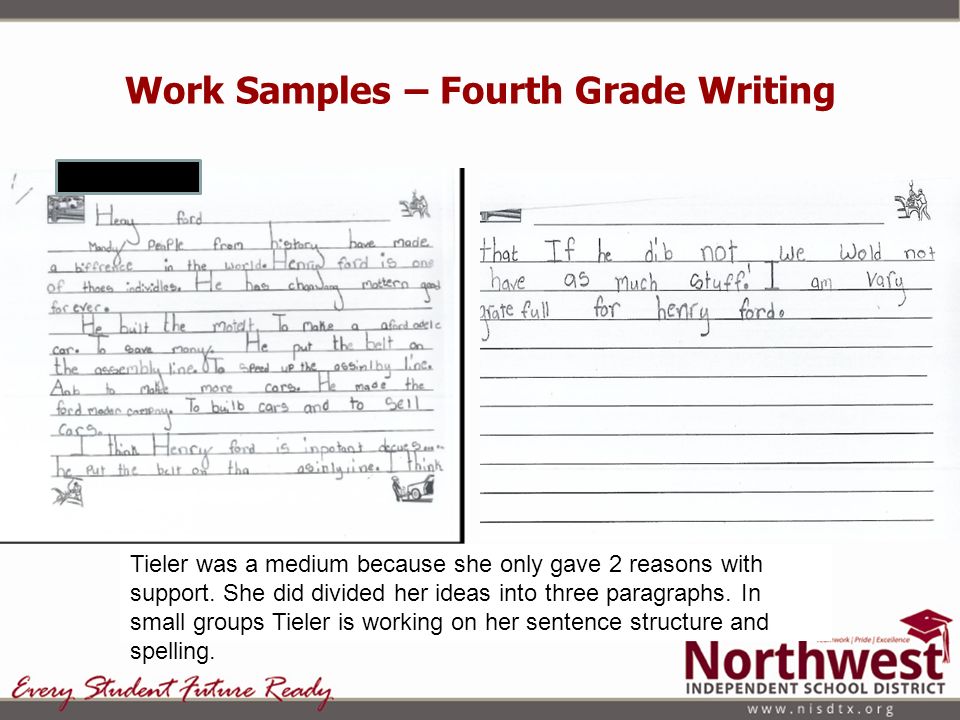 Work Samples – Fourth Grade Writing
Heny ford
Mandy PeoPle from history have made
a biffrence in the world. Henry ford is one
of thoes individles. He has chanang mottern good
for ever.
He built the motdt. To make a afordadele
car. To save mony. He put the belt on
the assembly line. To speed up the assinlby line.
Anb to make more cars. He made the
ford moder company. To builb cars and to sell
cars.
I think Henry ford is inpotant decues
he put the belt on tha asinlyine. I think
that If he dib not we wold not
have as much stuff! I am vary
grate full for henry ford.
Tieler was a medium because she only gave 2 reasons with
support. She did divided her ideas into three paragraphs. In
small groups Tieler is working on her sentence structure and
spelling.
Every Student Future Ready
Teamwork | Pride | Excellence
Northwest
INDEPENDENT SCHOOL DISTRICT
www.nisdtx.org